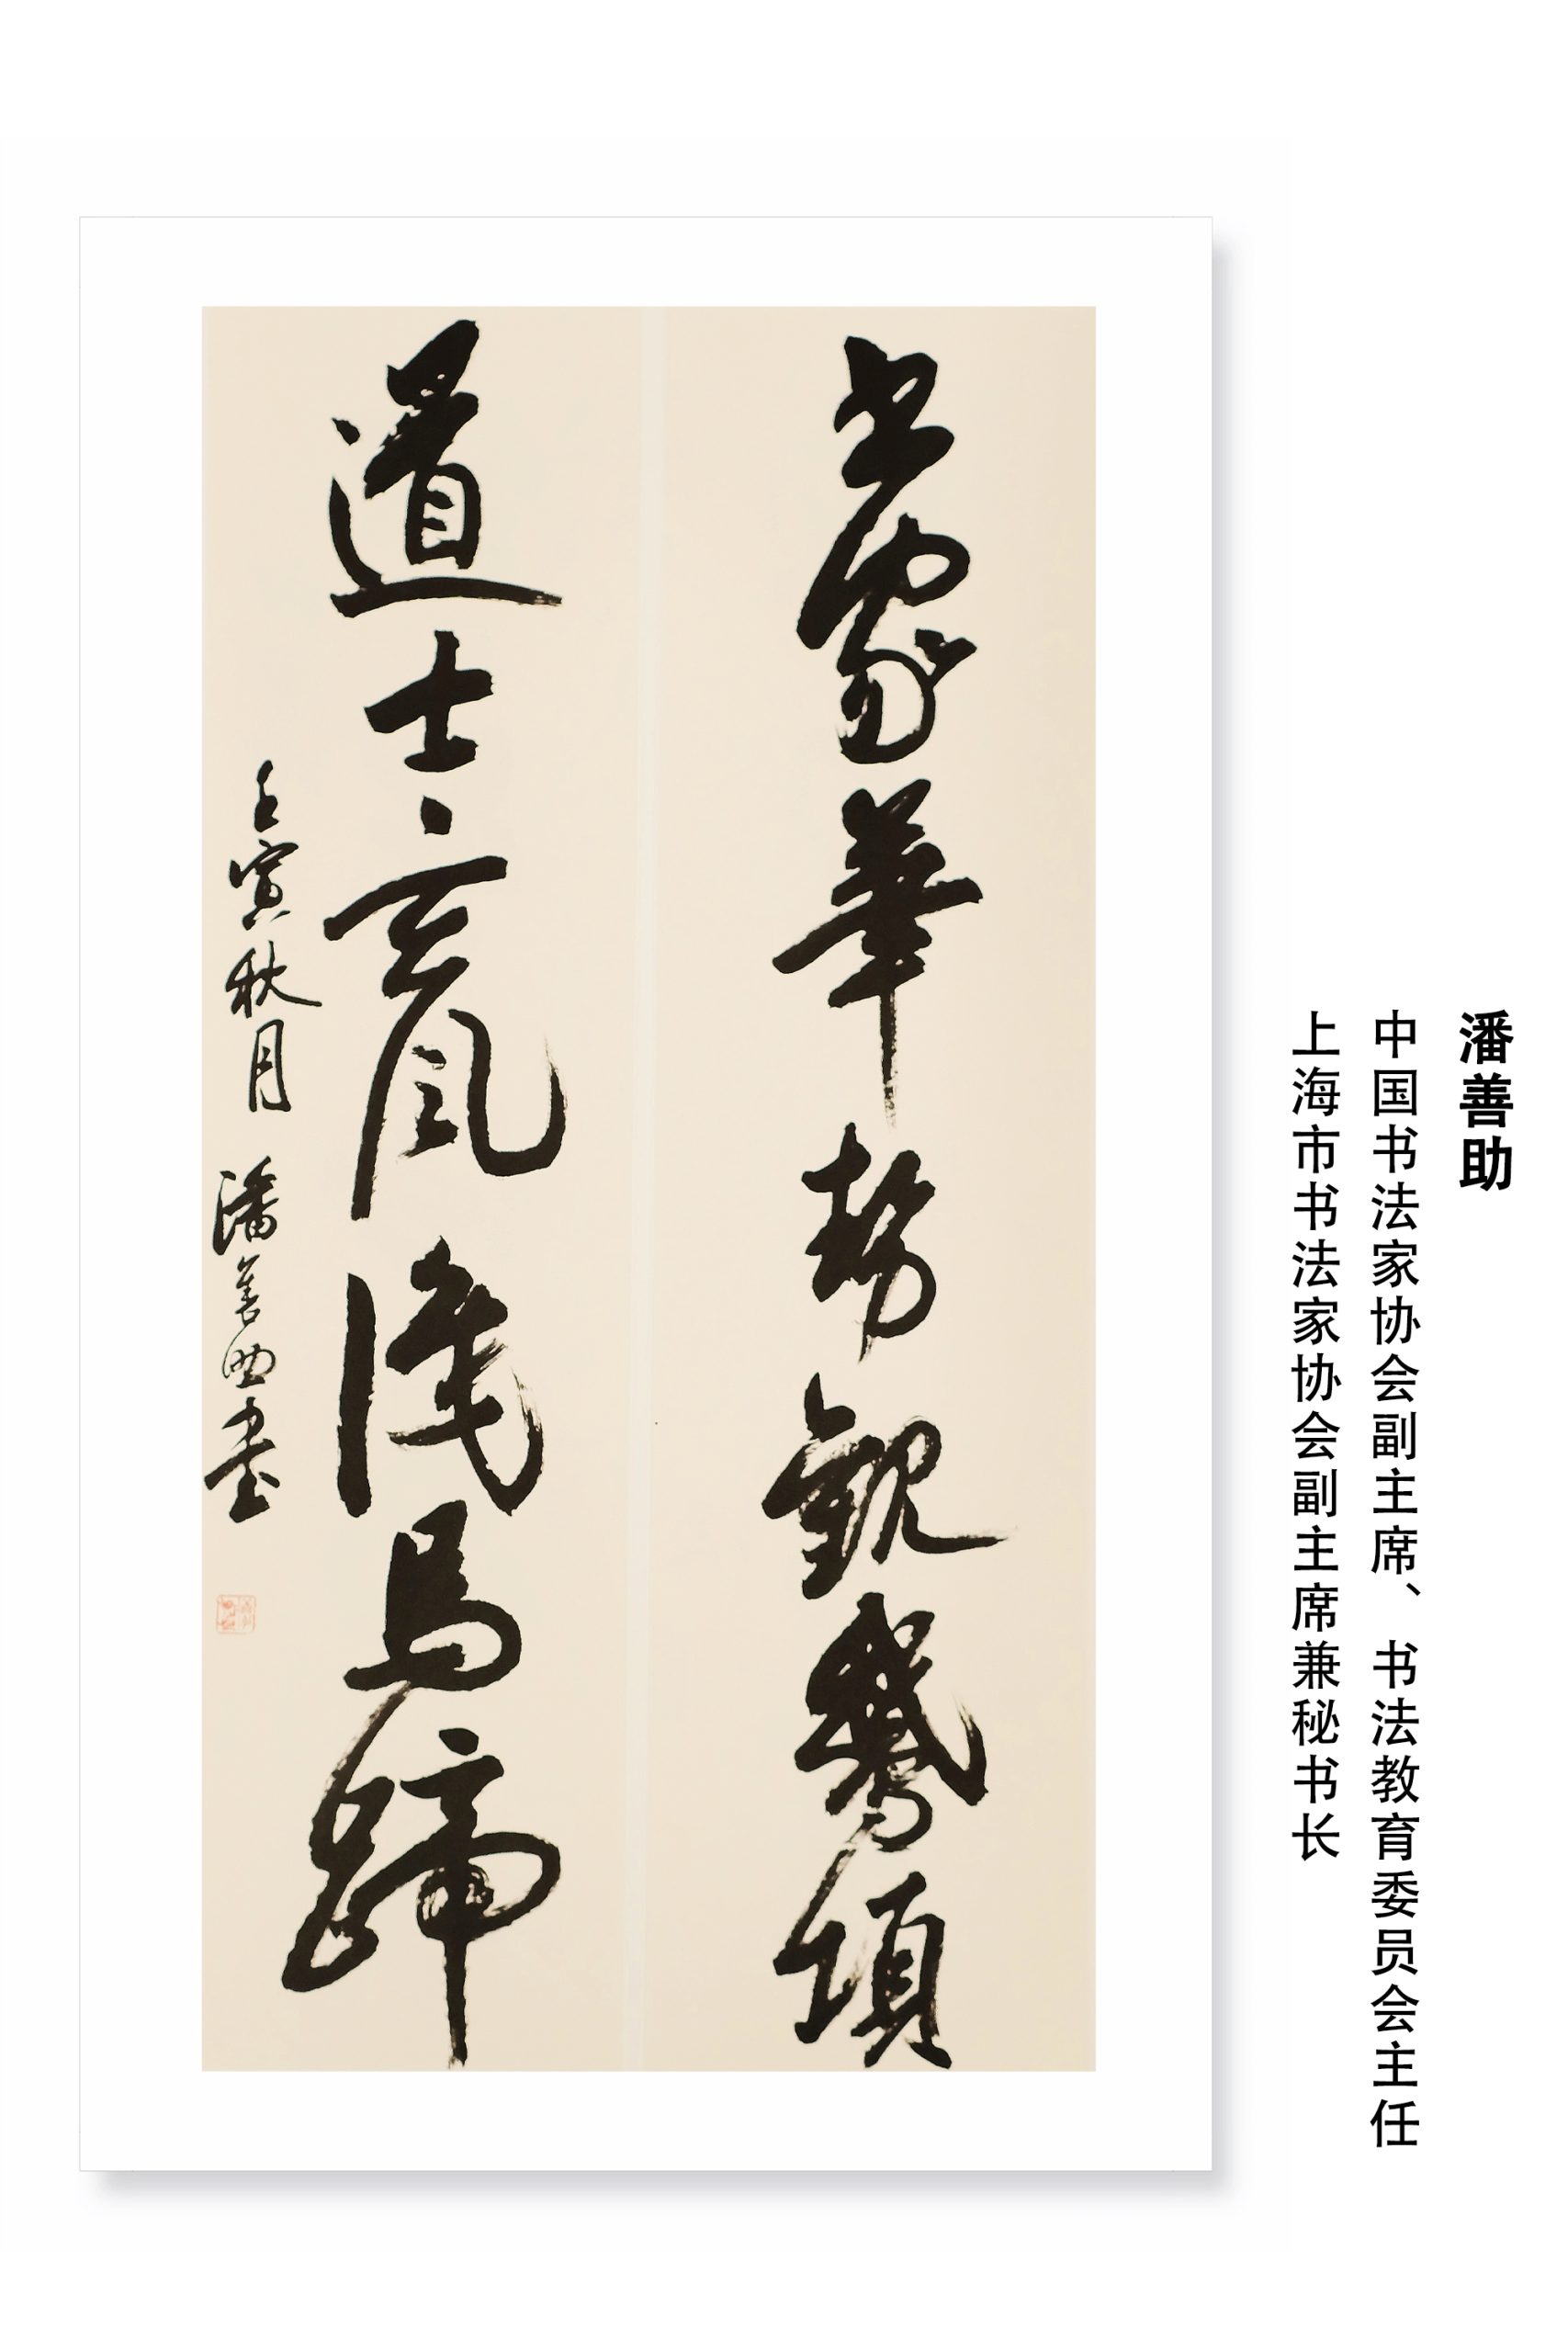 潘善助
中国书法家协会副主席、书法教育委员会主任
上海市书法家协会副主席兼秘书长
書家華勢觀鵝項
道士玄風識馬蹄
壬寅秋月 潘善助書